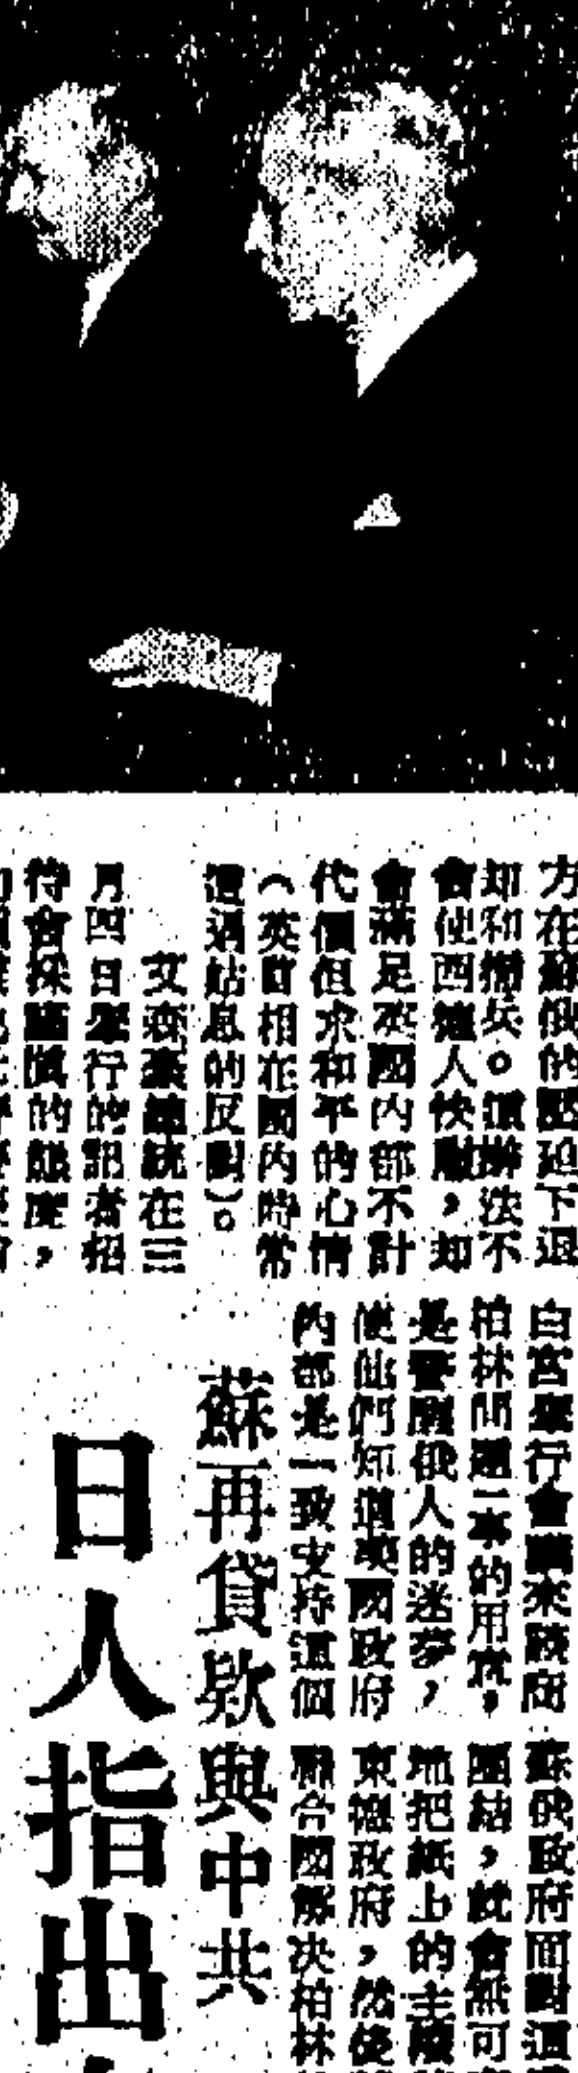 方在蘇俄的壓迫下退
却和撤兵。這辦法不
會使西德人快慰，却
會滿足英國內部不計
代價但求和平的心情
（英首相在國內時常
遭遇姑息的反對）。
艾森豪總統在三
月四日舉行的記者招
待會採謹慎的態度，
白宮舉行會議來談商
柏林問題一事的用意，
是警醒俄人的迷夢，
使他們知道英國政府
內部是一致支持這個
蘇俄政府面對這
團結，就會無可
地把紙上的主權
東德政府，然後
聯合國解決柏林
蘇再貸款與中共
日人指出